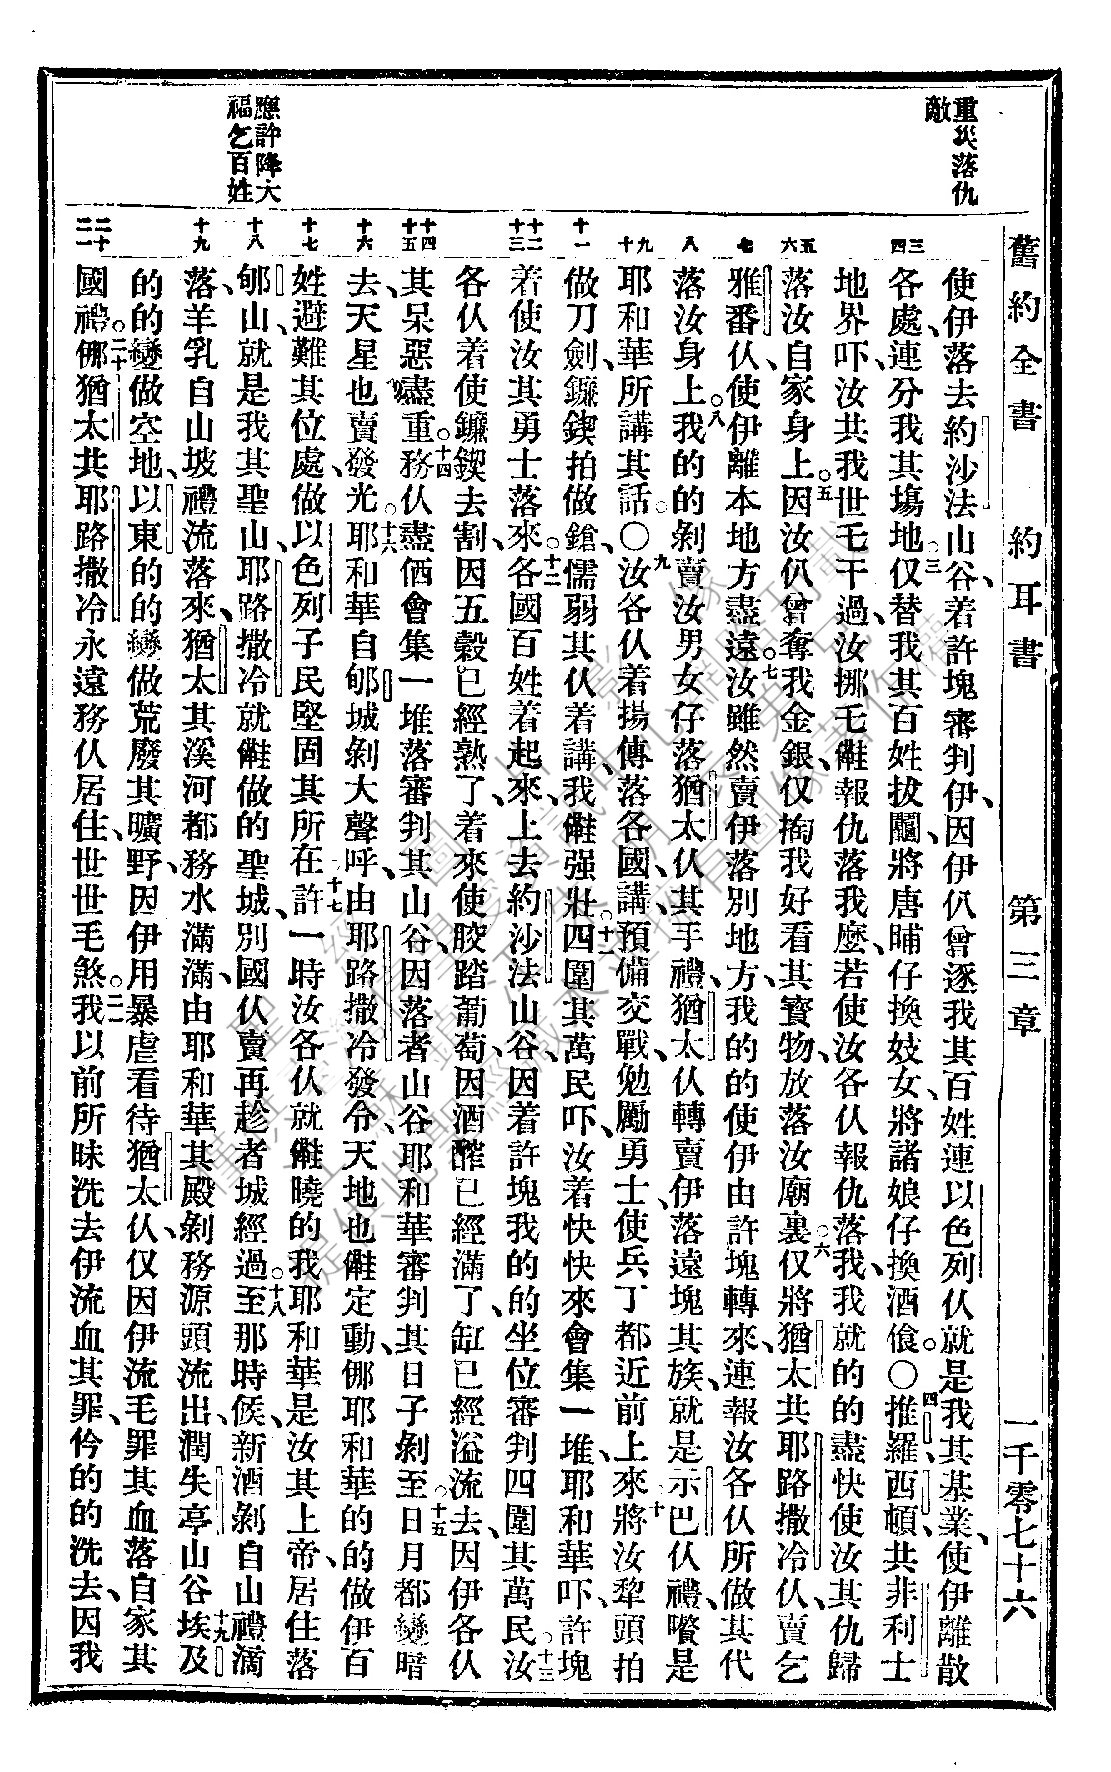 舊約全書 約耳書 第三章 一千零七十六
重災落仇
敵
應許降大
福乞百姓
三
四
五
六
七
八
九
十
十一
十二
十三
十四
十五
十六
十七
十八
十九
二十
二一
使伊落去約沙法山谷、着許塊審判伊、因伊仈曾逐我其百姓連以色列仈就是我其基業、使伊離散
各處、連分我其塲地。三仅替我其百姓拔鬮、將唐晡仔換妓女、將諸娘仔換酒飧。〇四推羅、西頓、共非利士
地界吓、汝共我世乇干過、汝挪乇㑚報仇落我麽、若使汝各仈報仇落我、我就的的盡快使汝其仇歸
落汝自家身上。五因汝仈曾奪我金銀、仅掏我好看其寳物、放落汝廟裏。六仅將猶太共耶路撒冷仈賣乞
雅番仈、使伊離本地方盡遠。七汝雖然賣伊落別地方、我的的使伊由許塊轉來、連報汝各仈所做其代
落汝身上。八我的的剝賣汝男女仔落猶太仈其手禮、猶太仈轉賣伊落遠塊其族、就是示巴仈禮、嚽是
耶和華所講其話。〇九汝各仈着揚傳落各國講、預備交戰、勉勵勇士、使兵丁都近前上來。十將汝犂頭拍
做刀劍、鐮鍥拍做鎗、懦弱其仈着講、我㑚强壯。十一四圍其萬民吓、汝着快快來會集一堆、耶和華吓、許塊
着使汝其勇士落來。十二各國百姓着起來、上去約沙法山谷、因着許塊我的的坐位審判四圍其萬民。十三汝
各仈着使鐮鍥去割、因五穀已經熟了、着來使骹踏葡萄、因酒醡已經滿了、缸已經溢流去、因伊各仈
其呆惡盡重。十四務仈盡価會集一堆落審判其山谷、因落者山谷耶和華審判其日子剝至。十五日月都變暗
去、天星也賣發光。十六耶和華自郇城剝大聲呼、由耶路撒冷發令、天地也㑚定動、倻耶和華的的做伊百
姓避難其位處、做以色列子民堅固其所在。十七許一時汝各仈就㑚曉的我耶和華是汝其上帝、居住落
郇山、就是我其聖山、耶路撒冷就㑚做的聖城、別國仈賣再趁者城經過。十八至那時候、新酒剝自山禮滴
落、羊乳自山坡禮流落來、猶太其溪河都務水滿滿、由耶和華其殿剝務源頭流出、潤失亭山谷。十九埃及
的的變做空地、以東的的變做荒廢其曠野、因伊用暴虐看待猶太仈、仅因伊流毛罪其血落自家其
國禮。二十倻猶太共耶路撒冷永遠務仈居住、世世毛煞。二一我以前所昧洗去伊流血其罪、仱的的洗去、因我